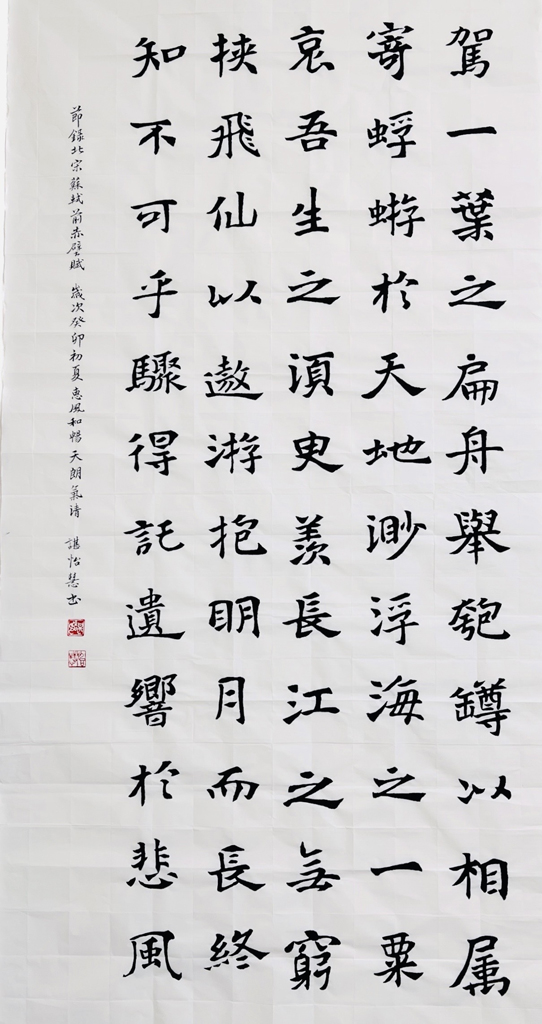 駕一葉之扁舟舉匏罇以相属
寄蜉蝣於天地渺浮海之一粟
哀吾生之須臾羨長江之無窮
挾飛仙以遨游抱明月而長終
知不可乎驟得託遺響於悲風
節錄北宋蘇軾前赤壁賦 歲次癸卯初夏惠風和暢天朗氣清 諶怡慧书